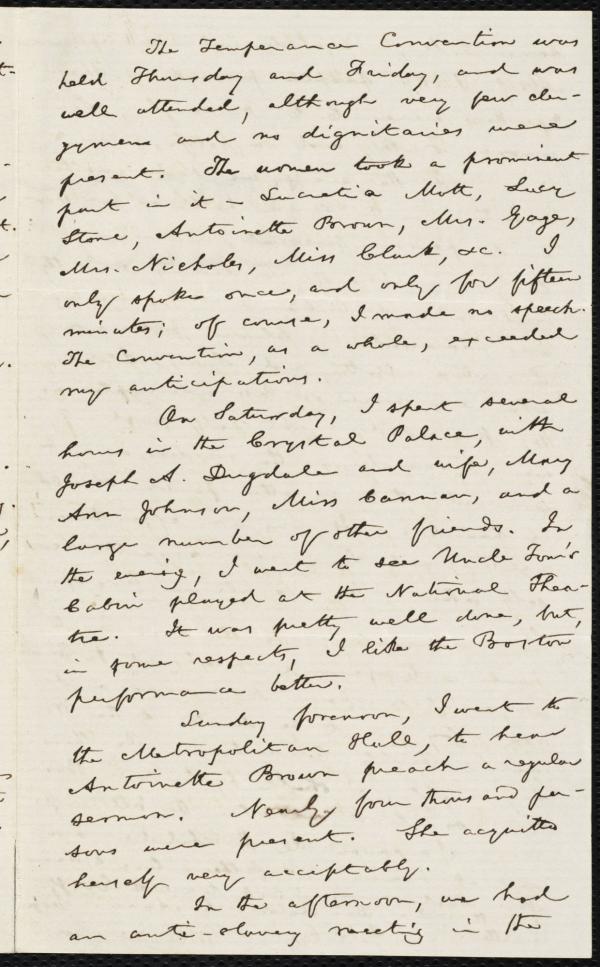 The Temperance Convention was
held Thursday and Friday, and was
well attended, although very few cler-
gymen and no dignitaries were
present. The women took a prominent
part in it — Lucretia Mott, Lucy
Stone, Antoinette Brown, Mrs. Gage,
Mrs. Nichols, Miss Clark, &c. I
only spoke once, and only for fifteen
minutes; of course, I made no speech.
The Convention, as a whole, exceeded
my anticipations.
On Saturday, I spent several
hours in the Crystal Palace, with
Joseph A. Dugdale and wife, Mary
Ann Johnson, Miss and a
large number of other friends. In
the evening, I went to see Uncle Tom's
Cabin played at the National Thea-
tre. It was pretty well done, but,
in some respects, I like the Boston
performance better.
Sunday forenoon, I went to
the Metropolitan Hall, to hear
Antoinette Brown preach a regular
sermon. Nearly four thousand per-
sons were present. She acquitted
herself very acceptably.
In the afternoon, we had
an anti-slavery meeting in the